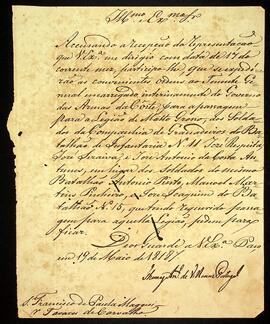 Ill.mo e Ex.mo Sr.
Accusando a recepção da representação
que V. Ex.a me dirigio com data de 17 do
corrente mez, participo-lhe que se expedi-
rão as convenientes ordens ao Tenente Ge-
neral encarregado interinamente do Governo
das Armas da Corte, para a passagem
para a Legião de Matto Grosso, dos Solda-
dos da Companhia de Granadeiros do Ba-
talhão de Infantaria N. 11 José
José e José Antonio da Costa An-
tunes, em lugar dos Soldados do mesmo
Batalhão Antonio Pinto, Manoel Mar-
tins e José Joaquim do Ba-
talhão N. 15, que tendo requerido passa-
gem para aquella Legião, podem para
ficar.
Deos Guarde a V. Ex.a Paço
em 19 de Maio de 1818
Thomaz Ant. de V.a Nova Portugal
Sr. Francisco de Paula Maggessi
Tavares de Carvalho